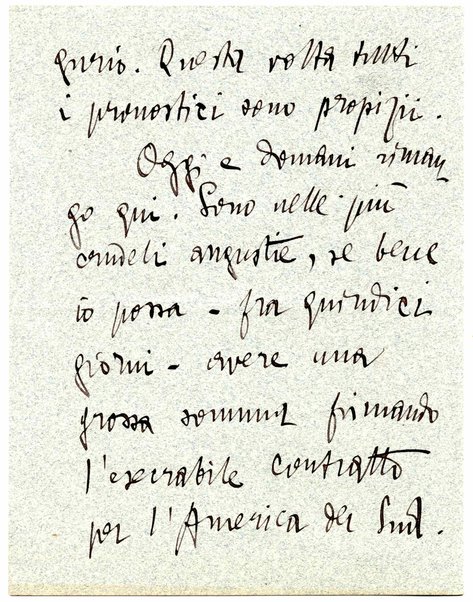 gurio. Questa volta tutti
i pronostici sono propizii.
Oggi e domani riman
go qui. Sono nelle più
crudeli angustie, se bene
io possa - fra quindici
giorni - avere una
grossa somma firmando
l'esecrabile contratto
per l'America del Sud.